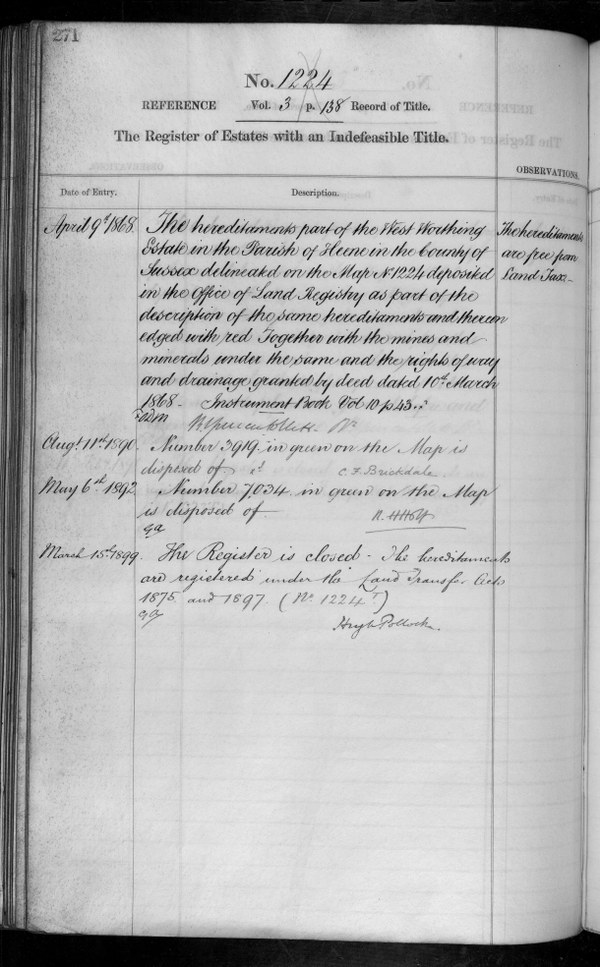 271
No. 1224
REFERENCE Vol. 3 p. 138 Record of Title.
The Register of Estates with an Indefeasible Title.
OBSERVATIONS.
Date of Entry.
Description.
April 9th 1868.
The hereditaments part of the West Worthing
Estate in the Parish of Heene in the County of
Sussex delineated on the Map No 1224 deposited
in the Office of Land Registry as part of the
description of the same hereditaments and thereon
edged with red Together with the mines and
minerals under the same and the rights of way
and drainage granted by deed dated 10th March
1868 - Instrument Book Vol 10 p 43.
The hereditaments
are free from
Land Tax -
Augt. 11th 1890.
Number 3919 in green on the Map is
disposed of. C. F. Brickdale.
May 6th 1892.
Number 7034 in green on the Map
is disposed of
March 15th 1899.
The Register is closed - The hereditaments
are registered under the Land Transfer Acts
1875 and 1897. (No. 1224T)
Hugh Pollock.